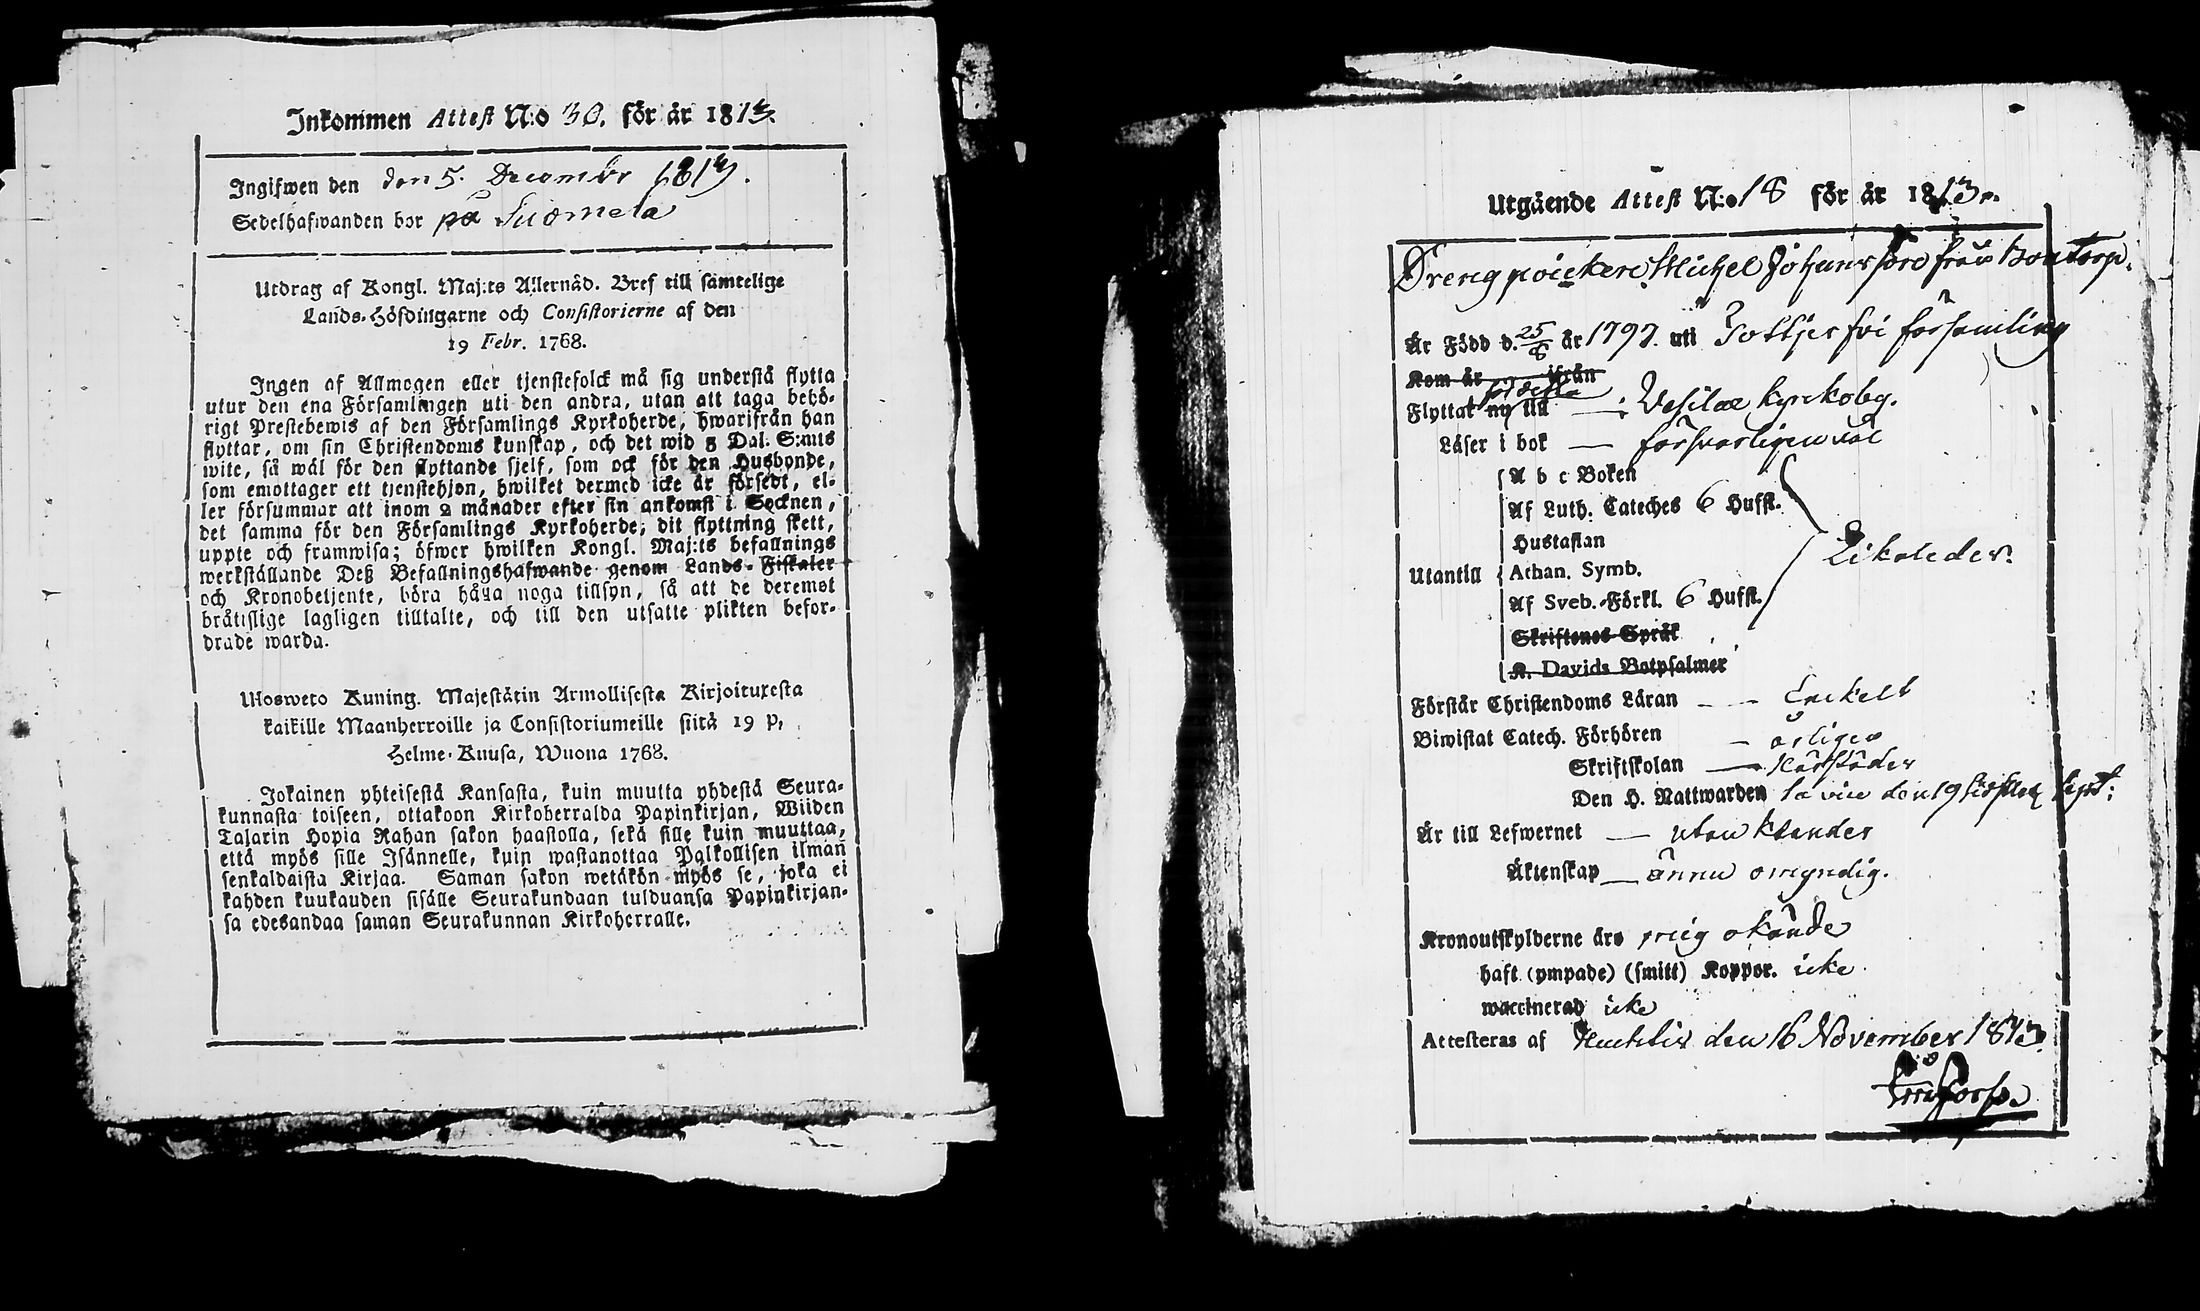 Inkommen Attest N:o 30. för år 1813.
Ingifwen den den 5. Decembr 1813.
Sedelhafwanden bor på Suomela
Utdrag af Kongl. Maj:ts Allernåd. Bref till samtelige
Lands-Höfdingarne och Consistorierne af den
19 Febr. 1768.
Ingen af Allmogen eller tjenstefolck må sig understå flytta
utur den ena Församlingen uti den andra, utan att taga behö-
rigt Prestebewis af den Församlings Kyrkoherde, hwarifrån han
flyttar, om sin Christendoms kunskap, och det wid 5 Dal. S:mts
wite, så wäl för den flyttande sjelf, som ock för den Husbonde,
som emottager ett tjenstehjon, hwilket dermed icke är försedt, el-
ler försummar att inom 2 månader efter sin ankomst i Socknen,
det samma för den Församlings Kyrkoherde, dit flyttning skett,
uppte och framwisa; öfwer hwilken Kongl. Maj:ts befallnings
werkställande Deß Befallningshafwande genom Lands-Fiskaler
och Kronobetjente, böra hålla noga tillsyn, så att de deremot
bråtislige lagligen tilltalte, och till den utsatte plikten befor-
drade warda.
Ulosweto Kuning. Majestätin Armollisesta Kirjoituxesta
kaikille Maanherroille ja Consistoriumeille siitä 19 p.
Helme-Kuusa, Wuona 1768.
Jokainen yhteisestä Kansasta, kuin muutta yhdestä Seura-
kunnasta toiseen, ottakoon Kirkoherralda Papinkirjan, Wiiden
Talarin Hopia Rahan sakon haastolla, sekä sille kuin muuttaa,
että myös sille Isännelle, kuin wastanottaa Palkollisen ilman
senkaldaista Kirjaa. Saman sakon wetäkön myös se, joka ei
kahden kuukauden sisälle Seurakundaan tulduansa Papinkirjan-
sa edesandaa saman Seurakunnan Kirkoherralle.
Utgående Attest N:o 18 för år 1813.
Drengpoicken Michel Johansson från
Är Född d. 25/8 år 1797. uti församling
Kom år ifrån
Flyttat nu till Vesilax kyrkoby.
Läser i bok — försvarligen väl
A b c Boken
Af Luth. Cateches 6 Hufst.
Hustaflan
Utantill Athan. Symb. Likaledes.
Af Sveb. Förkl. 6 Hufst.
Skriftenes Språk
K. Davids Botpsalmer
Förstår Christendoms Läran — — Enkelt
Biwistat Catech. Förhören — årligen
Skriftskolan —
Den H. Nattwarden den 19 sistled. Sept:
Är till Lefwernet — utan klander
Äktenskap — ännu omyndig.
Kronoutskylderne äro mig okände
haft (ympade) (smitt) Koppor. icke
waccinerad icke
Attesteras af den 16 November 1813.